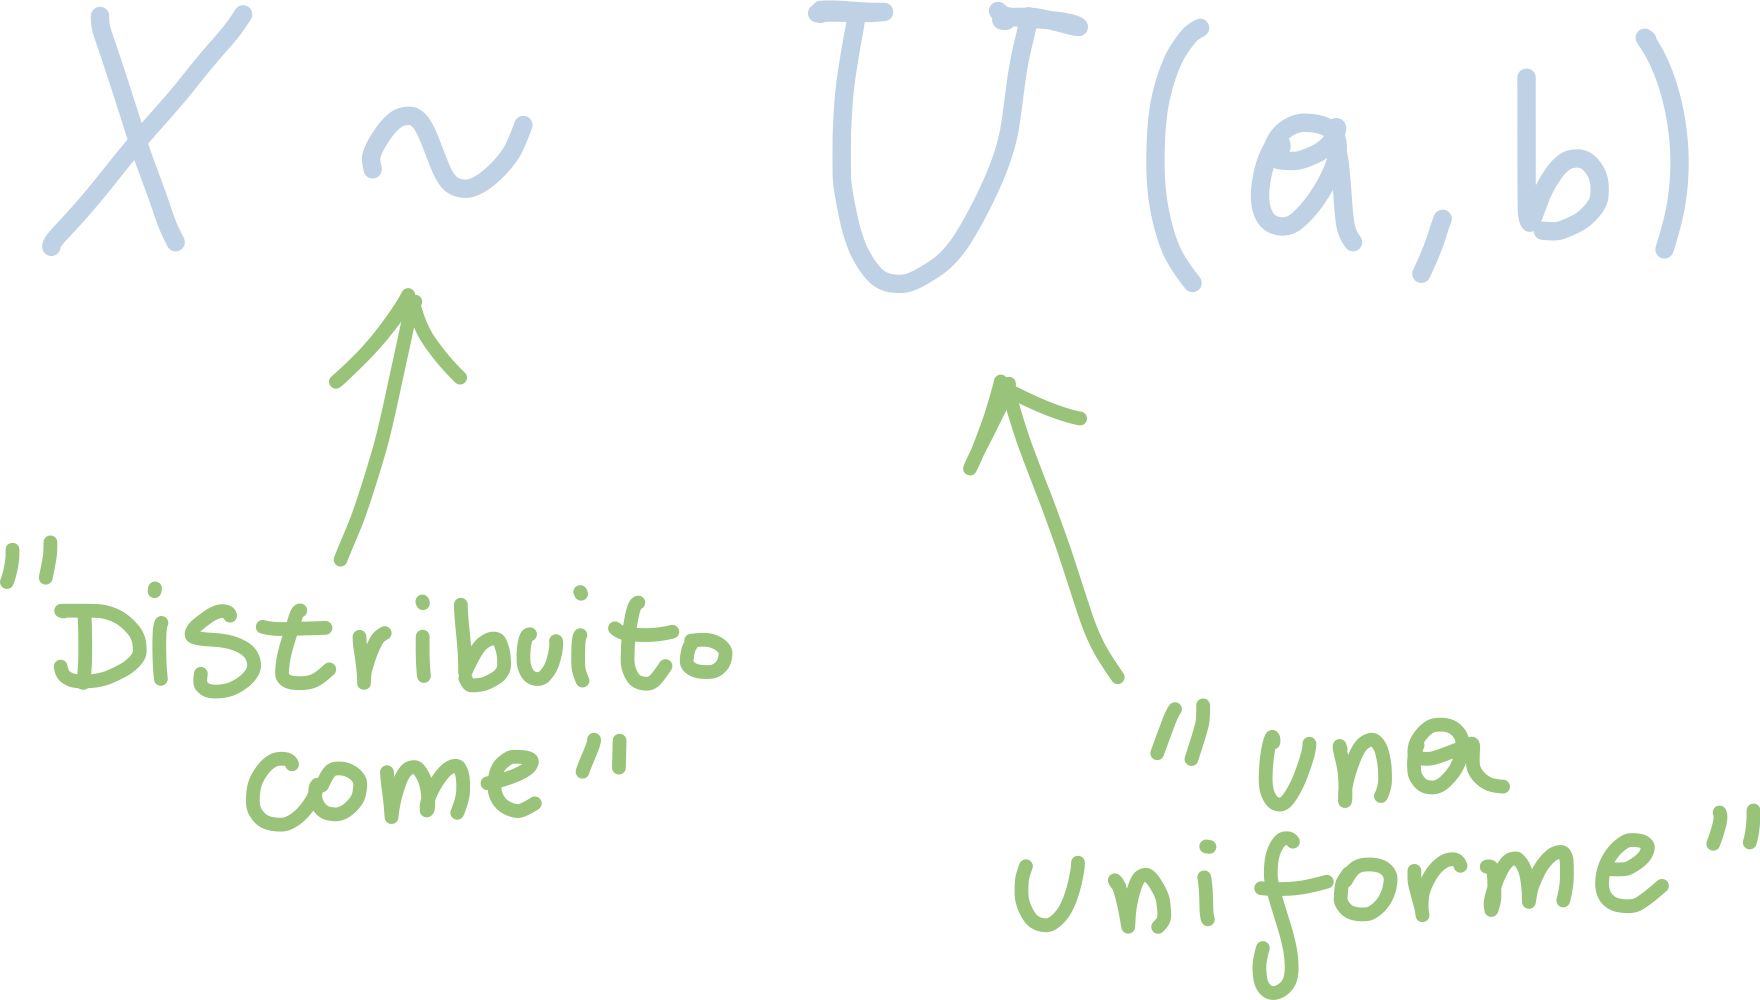 X ~ U(a,b)
"Distribuito
come"
"una
uniforme"